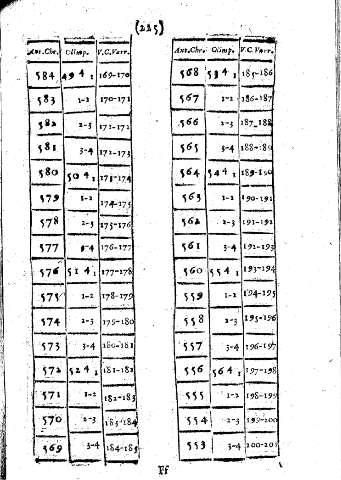 (225)
Ant.Chr. Olimp. V.C.Varr.
584 49 4 1 169-170
583 1-2 170-171
582 2-3 171-172
581 3-4 172-173
580 50 4 1 173-174
579 1-2 174-175
578 2-3 175-176
577 3-4 176-177
576 51 4 1 177-178
575 1-2 178-179
574 2-3 179-180
573 3-4 180-181
572 52 4 1 181-182
571 1-2 182-183
570 2-3 183-184
569 3-4 184-185
Ant.Chr. Olimp. V.C.Varr.
568 53 4 1 185-186
567 1-2 186-187
566 2-3 187-188
565 3-4 188-189
564 54 4 1 189-190
563 1-2 190-191
562 2-3 191-192
561 3-4 192-193
560 55 4 1 193-194
559 1-2 194-195
558 2-3 195-196
557 3-4 196-197
556 56 4 1 197-198
555 1-2 198-199
554 2-3 199-200
553 3-4 200-201
Ff